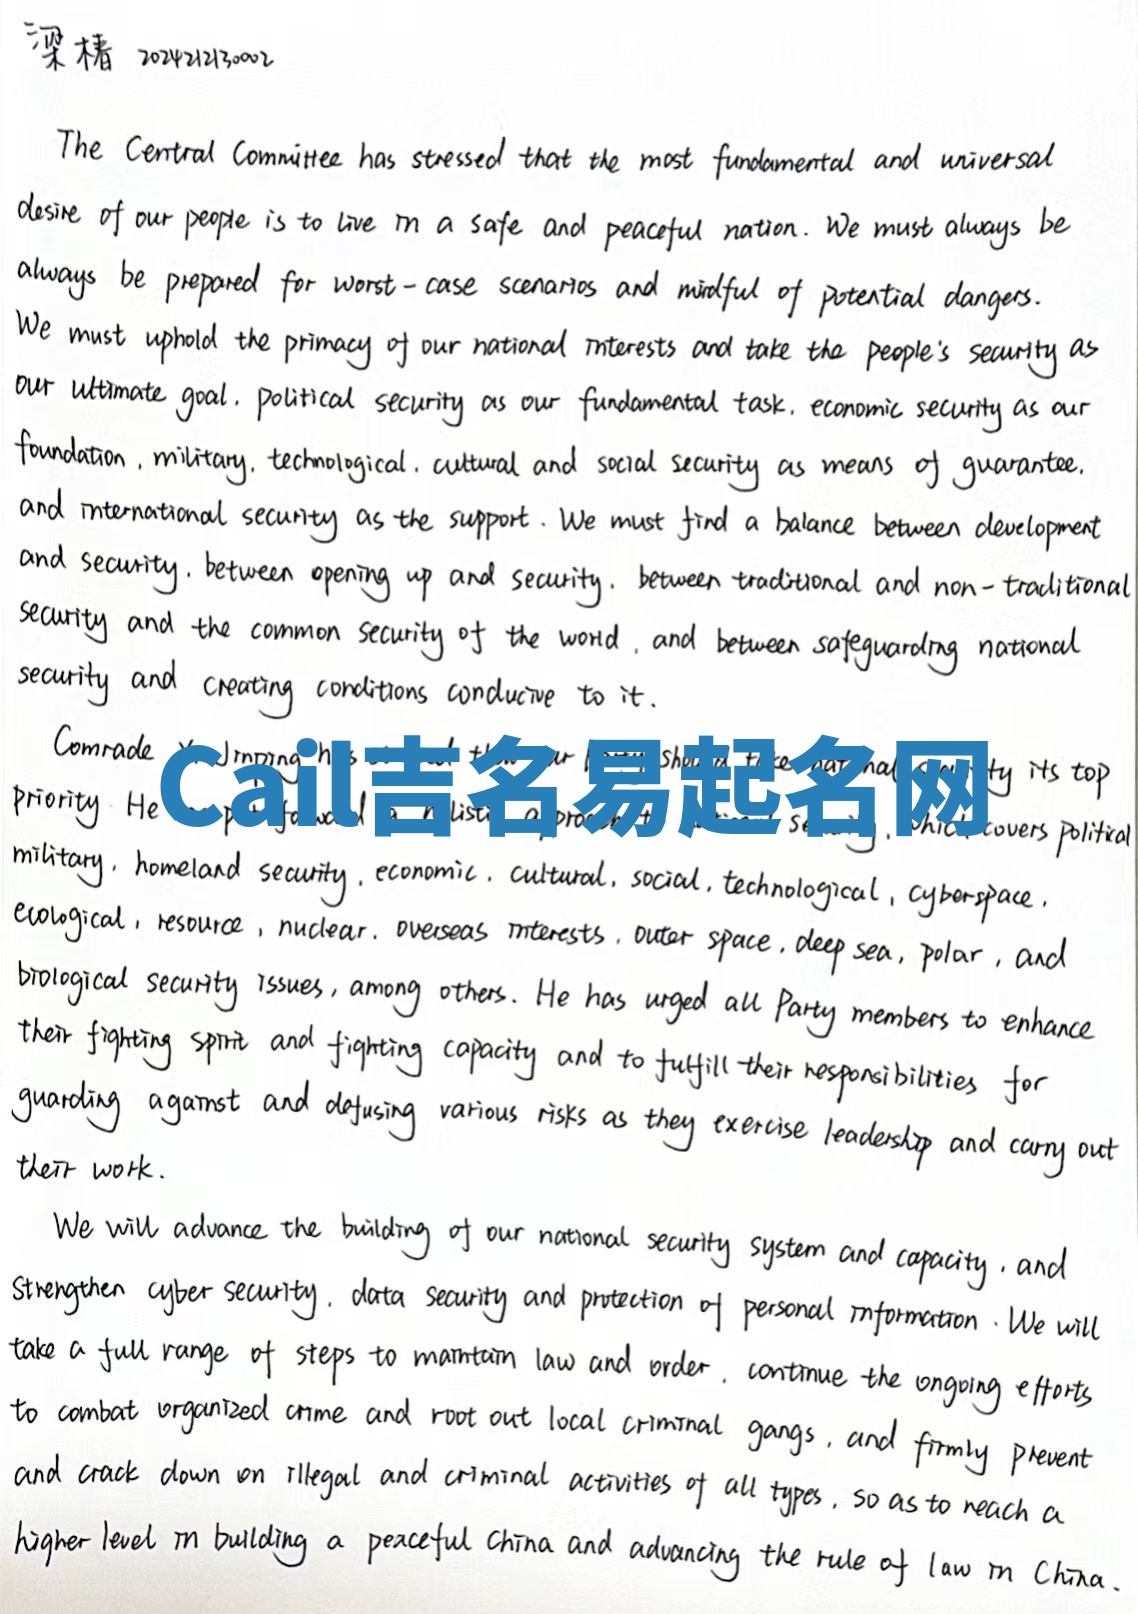 梁椿 2024212130002
The Central Committee has stressed that the most fundamental and universal
desire of our people is to live in a safe and peaceful nation. We must always be
always be prepared for worst-case scenarios and mindful of potential dangers.
We must uphold the primacy of our national interests and take the people's security as
our ultimate goal, political security as our fundamental task, economic security as our
foundation, military, technological, cultural and social security as means of guarantee,
and international security as the support. We must find a balance between development
and security, between opening up and security, between traditional and non-traditional
security and the common security of the world, and between safeguarding national
security and creating conditions conducive to it.
Comrade Jinping has our should take national its top
Cail吉名易起名网
priority. He put forward a holistic approach security, which covers political
military, homeland security, economic, cultural, social, technological, cyberspace,
ecological, resource, nuclear, overseas interests, outer space, deep sea, polar, and
biological security issues, among others. He has urged all Party members to enhance
their fighting spirit and fighting capacity and to fulfill their responsibilities for
guarding against and defusing various risks as they exercise leadership and carry out
their work.
We will advance the building of our national security system and capacity, and
strengthen cyber security, data security and protection of personal information. We will
take a full range of steps to maintain law and order, continue the ongoing efforts
to combat organized crime and root out local criminal gangs, and firmly prevent
and crack down on illegal and criminal activities of all types, so as to reach a
higher level in building a peaceful China and advancing the rule of law in China.